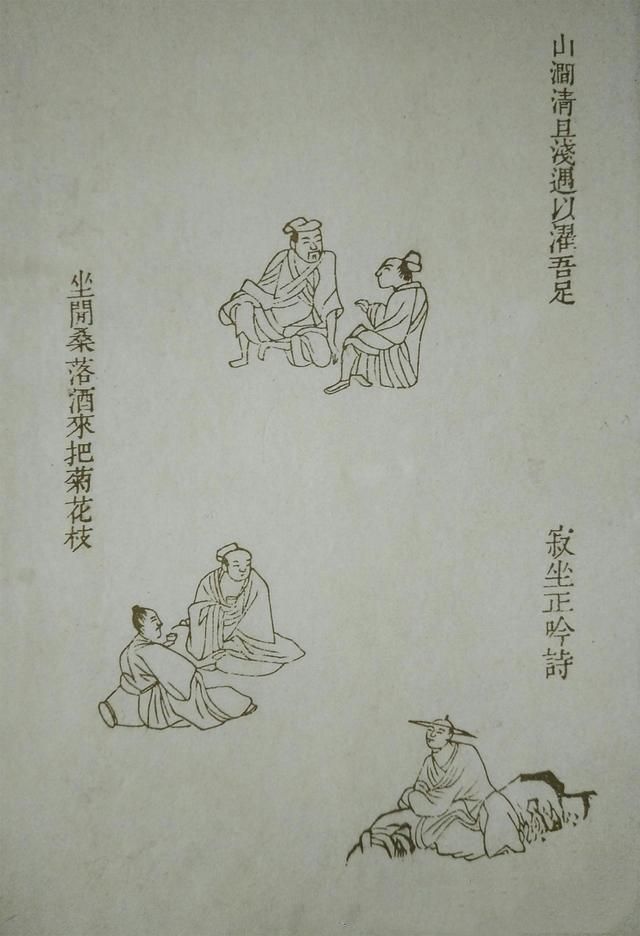 山澗清且淺遇以濯吾足
寂坐正吟詩
坐開桑落酒來把菊花枝